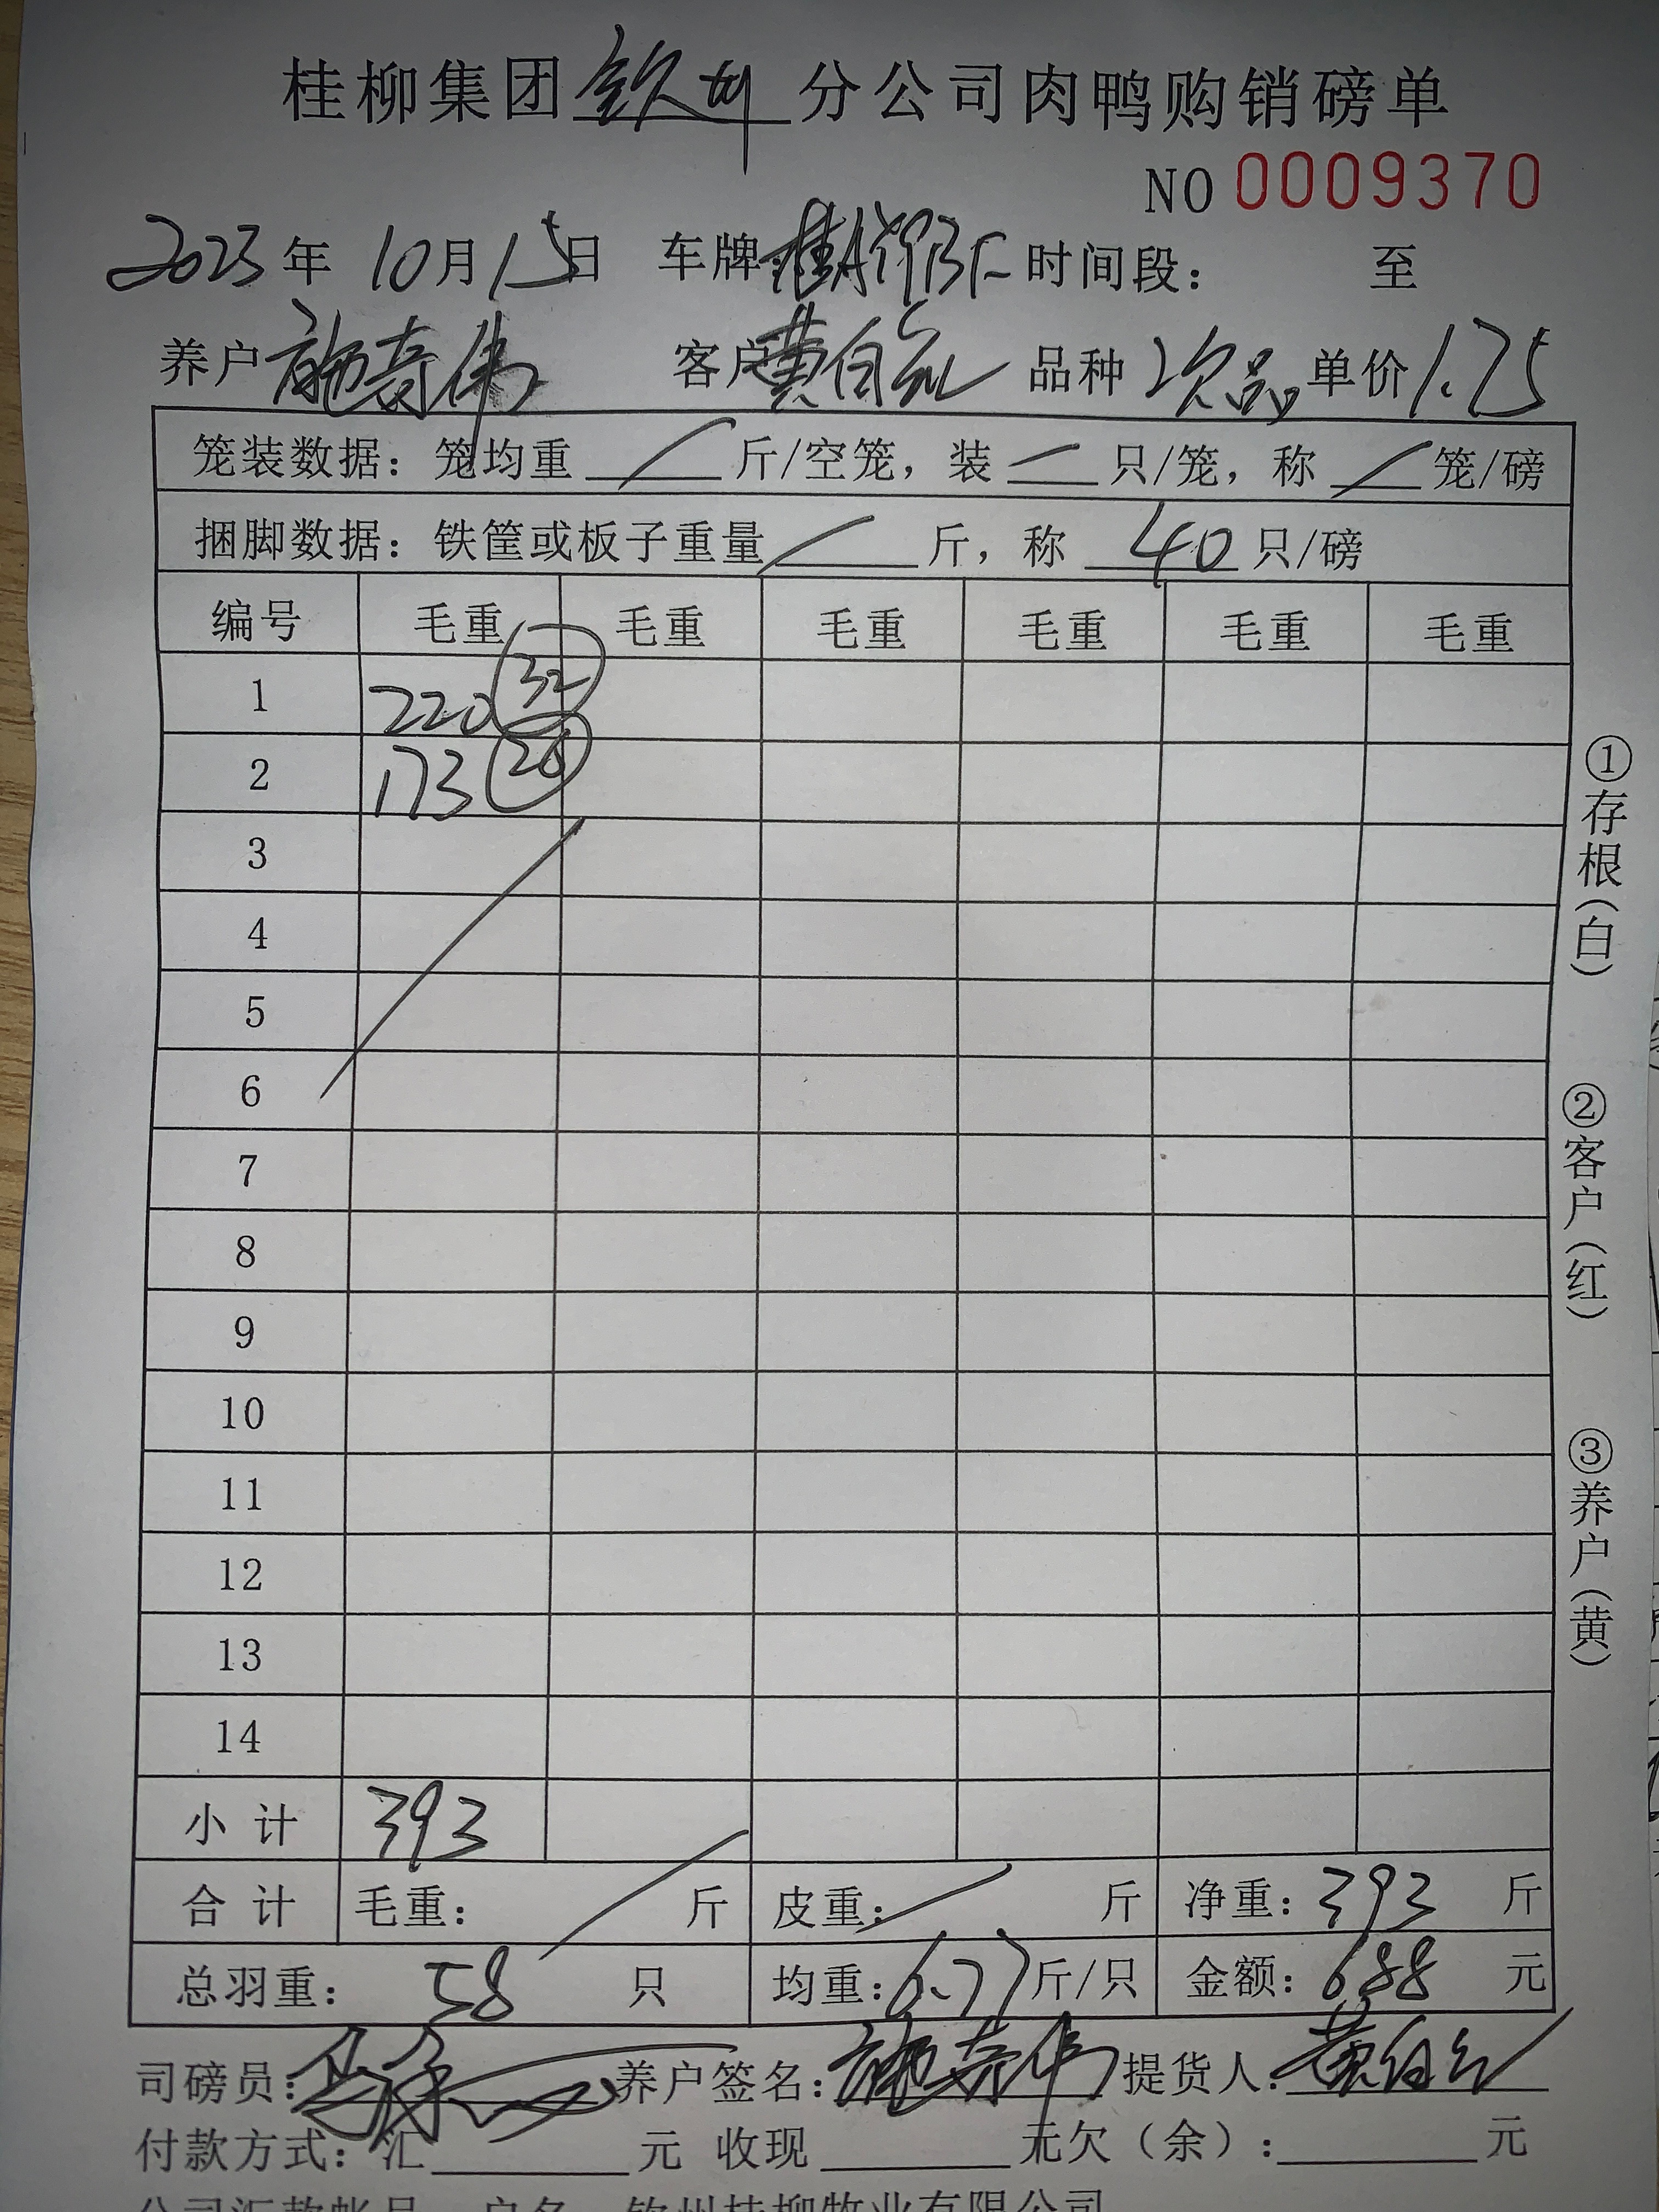 桂柳集团钦州分公司肉鸭购销磅单
NO 0009370
2023年10月15日 车牌: 时间段: 至
养户 施奇伟 客户 黄自 品种 次品 单价 1.75
笼装数据: 笼均重 / 斤/空笼, 装 / 只/笼, 称 / 笼/磅
捆脚数据: 铁筐或板子重量 / 斤, 称 40 只/磅
编号 毛重 毛重 毛重 毛重 毛重 毛重
1 220 32
2 173 26
3
4
5
6
7
8
9
10
11
12
13
14
小计 393
合计 毛重: / 斤 皮重: / 斤 净重: 393 斤
总羽重: 58 只 均重: 6.77 斤/只 金额: 688 元
司磅员: 养户签名: 施奇伟 提货人: 黄自
付款方式: 汇 元 收现 元欠(余): 元
公司汇款帐号 户名 钦州桂柳牧业有限公司
①存根(白)
②客户(红)
③养户(黄)